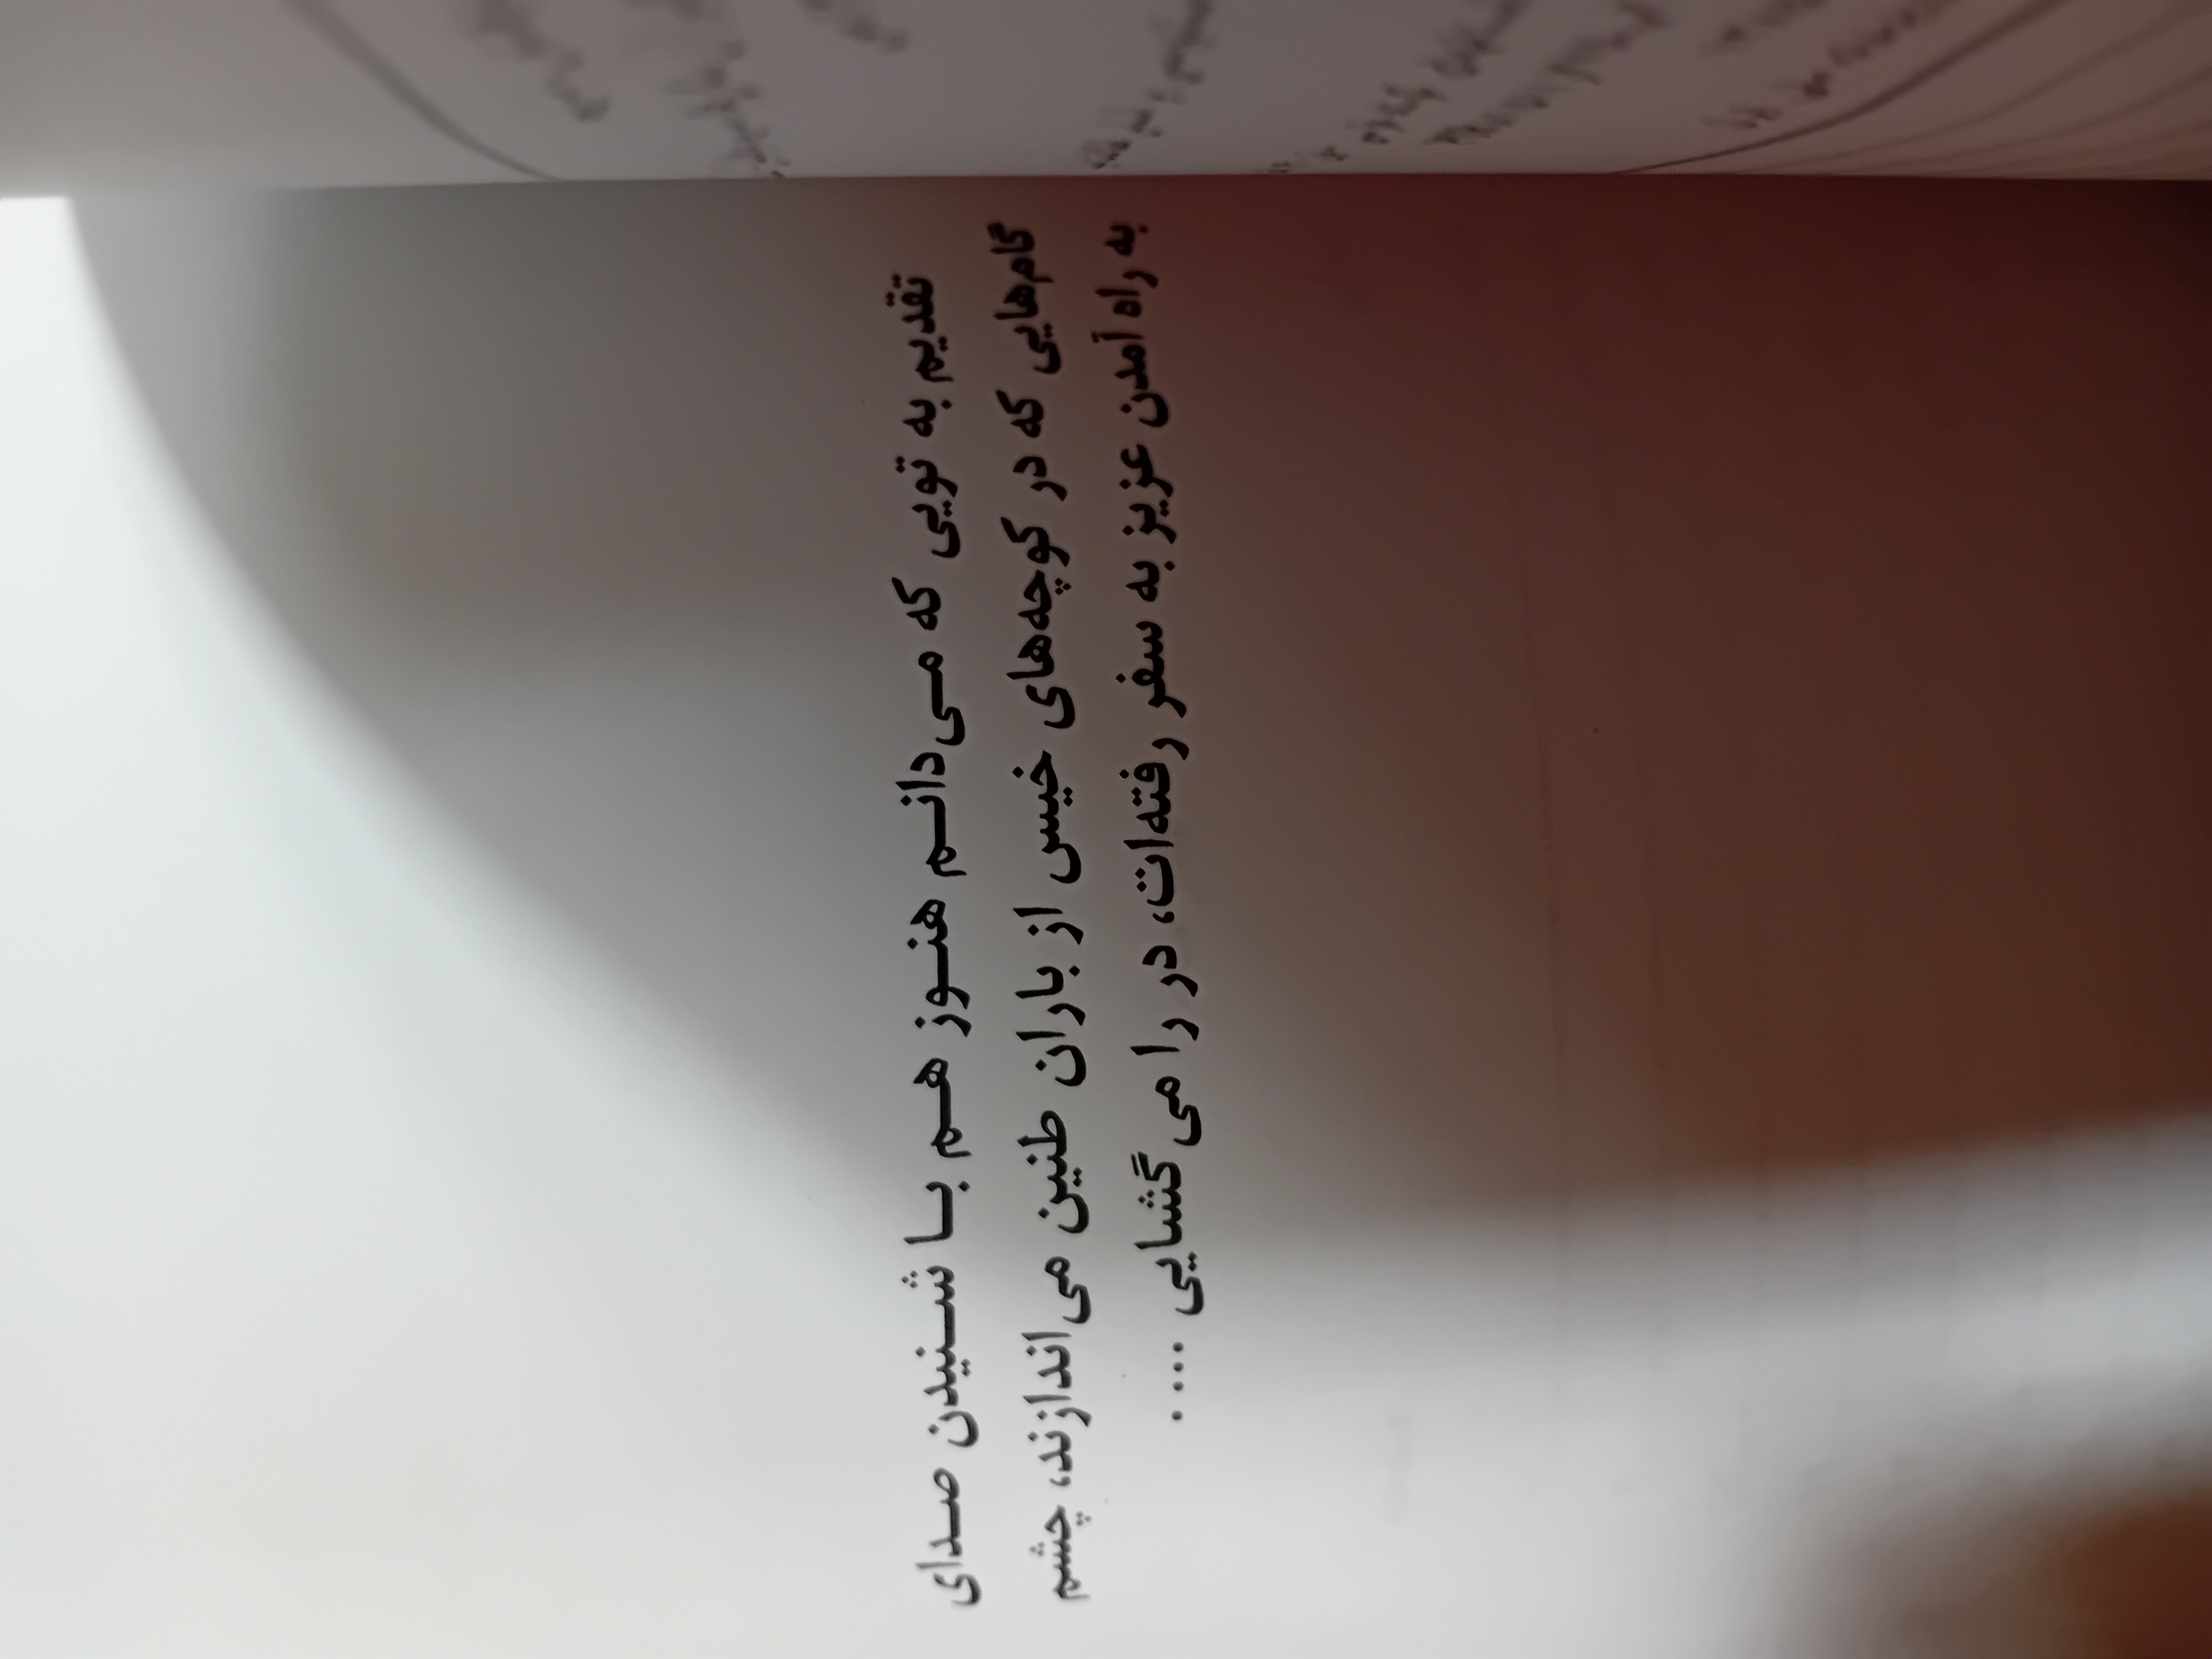 تقدیم به تویی که می‌دانم هنوز هم با شنیدن صدای
گام‌هایی که در کوچه‌های خیس از باران طنین می‌اندازند، چشم
به راه آمدن عزیز به سفر رفته‌ات، در را می‌گشایی ....